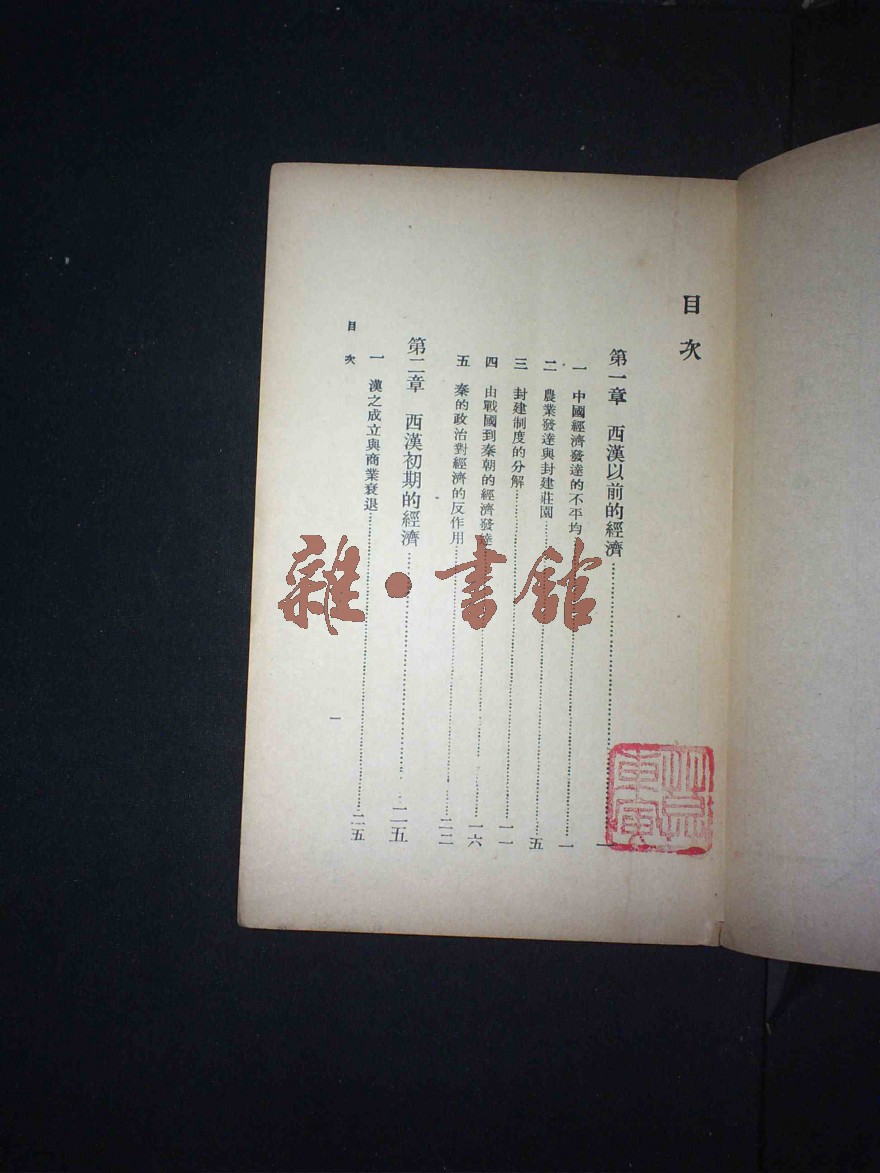 目次
第一章 西漢以前的經濟 一
一 中國經濟發達的不平均 一
二 農業發達與封建莊園 五
三 封建制度的分解 一一
四 由戰國到秦朝的經濟發達 一六
五 秦的政治對經濟的反作用 二二
第二章 西漢初期的經濟 二五
一 漢之成立與商業衰退 二五
目次
一
雜·書館